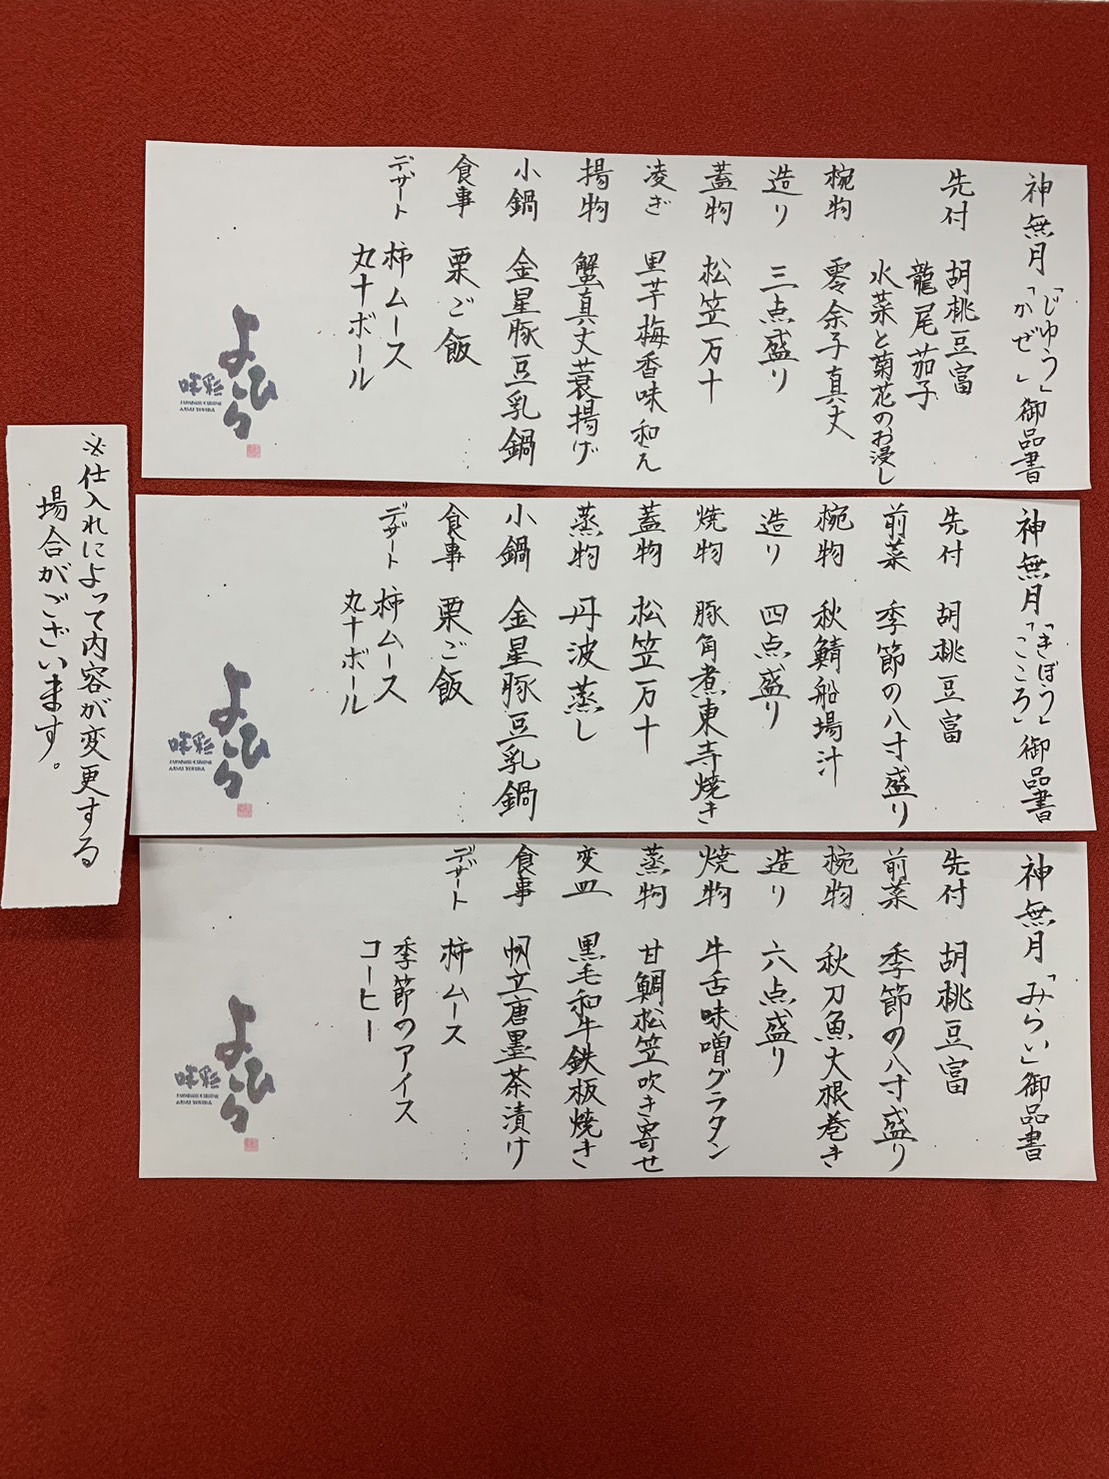 神無月「じゆう」「かぜ」御品書
先付 胡桃豆富
龍尾茄子
水菜と菊花のお浸し
椀物 零余子真丈
造り 三点盛り
蓋物 松笠万十
凌ぎ 里芋梅香味和え
揚物 蟹真丈蓑揚げ
小鍋 金星豚豆乳鍋
食事 栗ご飯
デザート 柿ムース
丸十ボール
よひら
神無月「きぼう」「こころ」御品書
先付 胡桃豆富
前菜 季節の八寸盛り
椀物 秋鯖船場汁
造り 四点盛り
焼物 豚角煮東寺焼き
蓋物 松笠万十
蒸物 丹波蒸し
小鍋 金星豚豆乳鍋
食事 栗ご飯
デザート 柿ムース
丸十ボール
よひら
神無月「みらい」御品書
先付 胡桃豆富
前菜 季節の八寸盛り
椀物 秋刀魚大根巻き
造り 六点盛り
焼物 牛舌味噌グラタン
蒸物 甘鯛松笠吹き寄せ
変皿 黒毛和牛鉄板焼き
食事 帆立唐墨茶漬け
デザート 柿ムース
季節のアイス
コーヒー
よひら
※仕入れによって内容が変更する
場合がございます。